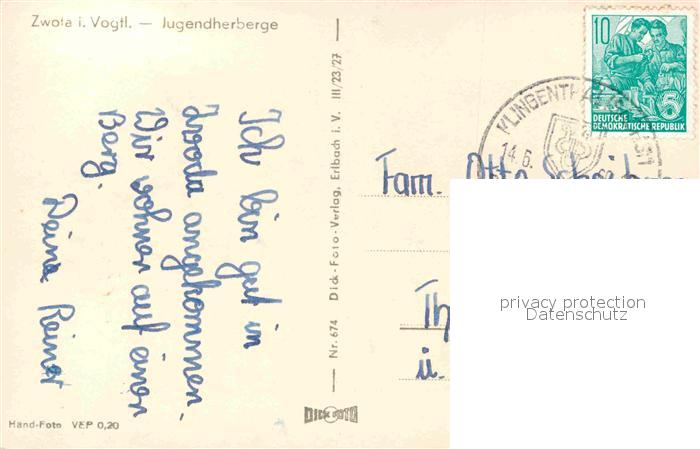 Zwota i. Vogtl. — Jugendherberge
Ich bin gut in
Zwota angekommen.
Wir wohnen auf einen
Berg.
Deine Reiner
Hand-Foto VEP 0,20
Nr. 674 Dick-Foto-Verlag, Erlbach i. V. III/23/27
DICK FOTO
10
5
DEUTSCHE
DEMOKRATISCHE REPUBLIK
KLINGENTHAL
14.6.
Fam. Otto
Th
u.
privacy protection
Datenschutz